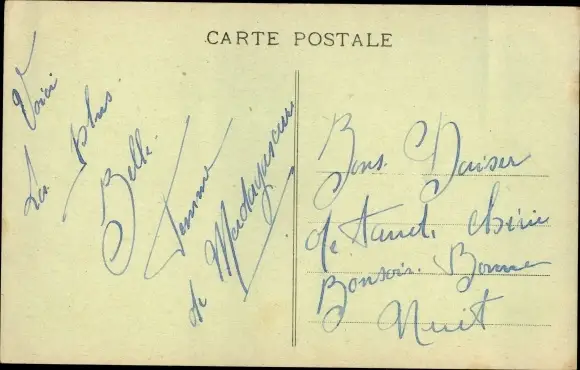 CARTE POSTALE
Voici
La plus
Belle
Femme
de Madagascar
Bons Baiser
de Tanti chérie
Bonsoir. Bonne
Nuit